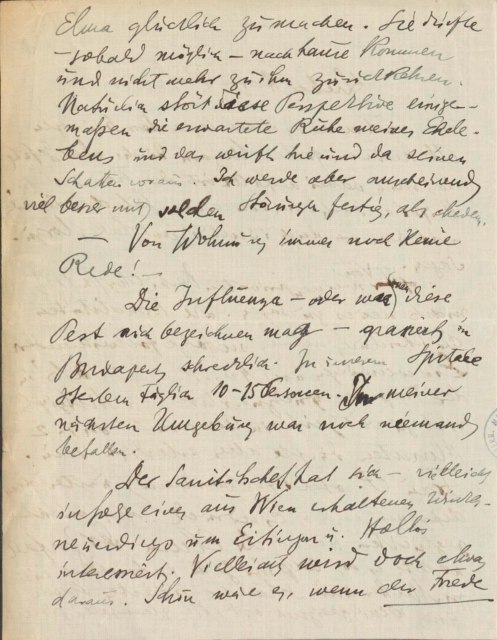 Elma glücklich zu machen. Sie dürfte
– sobald möglich – nachhause kommen
und nicht mehr zu ihm zurückkehren.
Natürlich stört diese Perspektive einiger-
maßen die erwartete Ruhe meines Ehele-
bens und das wirft hie und da seinen
Schatten voraus. Ich werde aber anscheinend
viel besser mit solchen Störungen fertig, als ehedem.
– Von Wohnung immer noch keine
Rede! –
Die Influenza – oder wie man diese
Pest auch bezeichnen mag – grassiert in
Budapest schrecklich. In unserem Spitale
sterben täglich 10–15 Personen. In meiner
nächsten Umgebung war noch niemand
befallen.
Der Sanitätschef hat sich – vielleicht
infolge eines aus Wien erhaltenen Winkes –
neuerdings um Eitingon u. Hollós
interessiert. Vielleicht wird doch etwas
daraus. Schön wäre es, wenn der Friede